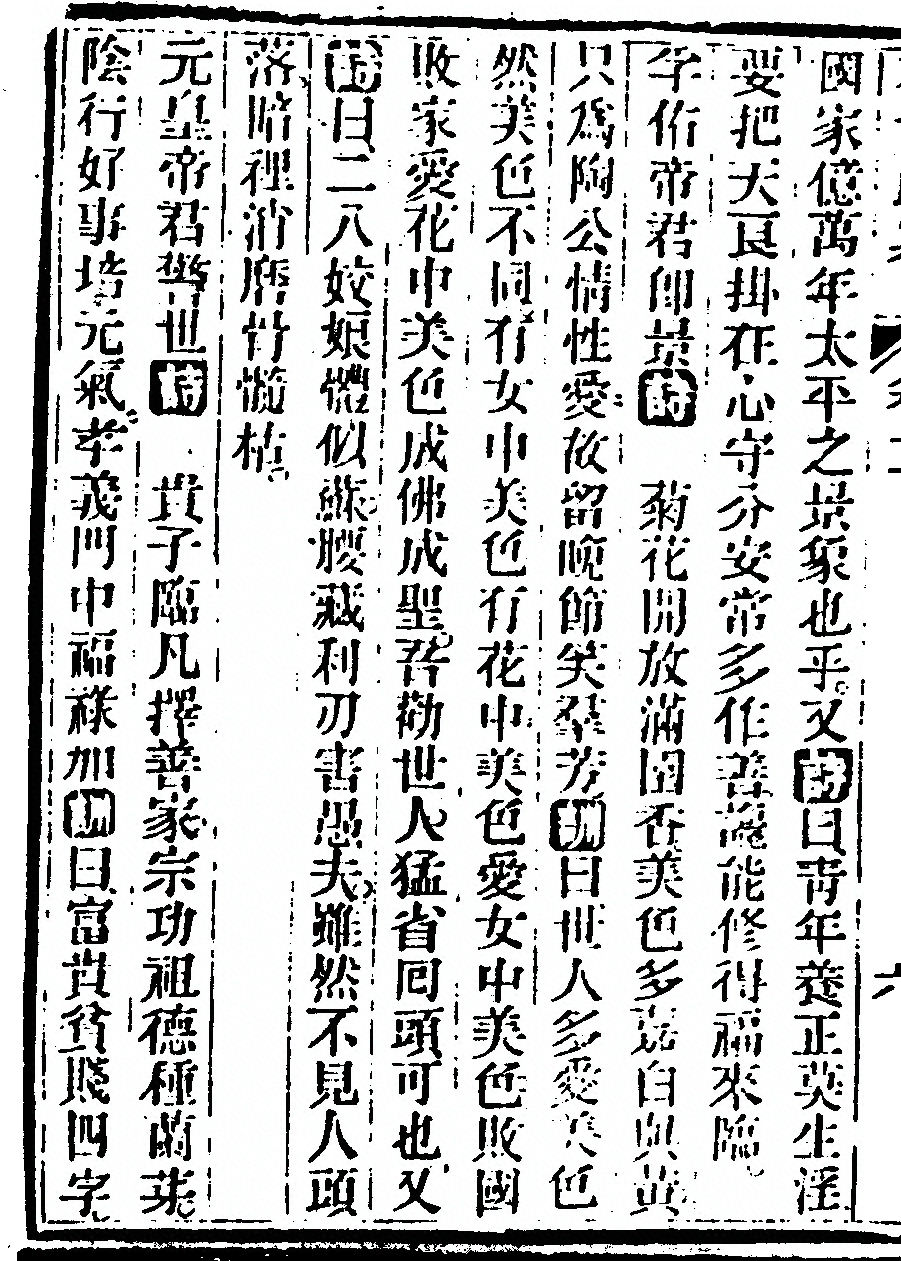 國家億萬年太平之景象也乎又詩曰青年養正莫生淫
要把天良掛在心守分安常多作善謹能修得福來臨
孚佑帝君即景詩　菊花開放滿園香美色多嘉白與黃
只為陶公情性愛故留晚節笑羣芳訓曰世人多愛美色
然美色不同有女中美色有花中美色愛女中美色敗國
敗家愛花中美色成佛成聖吾勸世人猛省回頭可也又
詩曰二八姣娘體似蘇腰藏利刃害愚夫雖然不見人頭
落暗裡消磨骨髓枯
元皇帝君警世詩　貴子臨凡擇善家宗功祖德種蘭芽
陰行好事培元氣孝義門中福祿加訓曰富貴貧賤四字